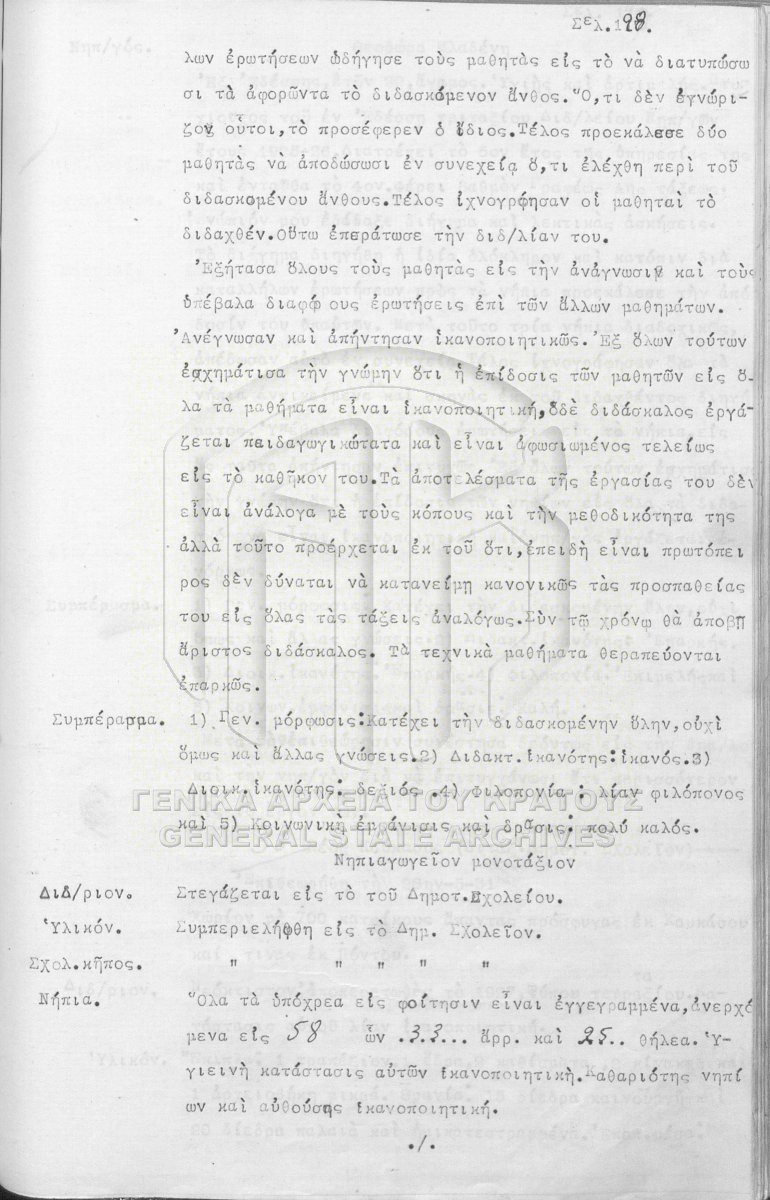 Σελ.198.
λων ἐρωτήσεων ὡδήγησε τοὺς μαθητὰς εἰς τὸ νὰ διατυπώσω
σι τὰ ἀφορῶντα τὸ διδασκόμενον ἄνθος.Ὅ,τι δὲν ἐγνώρι-
ζον οὗτοι,τὸ προσέφερεν ὁ ἴδιος.Τέλος προεκάλεσε δύο
μαθητὰς νὰ ἀποδώσωσι ἐν συνεχείᾳ ὅ,τι ἐλέχθη περὶ τοῦ
διδασκομένου ἄνθους.Τέλος ἰχνογρφησαν οἱ μαθηταὶ τὸ
διδαχθέν.Οὕτω ἐπεράτωσε τὴν διδ/λίαν του.
Ἐξήτασα ὅλους τοὺς μαθητὰς εἰς τὴν ἀνάγνωσιν καὶ τοὺς
ὑπέβαλα διαφόρους ἐρωτήσεις ἐπὶ τῶν ἄλλων μαθημάτων.
Ἀνέγνωσαν καὶ ἀπήντησαν ἱκανοποιητικῶς.Ἐξ ὅλων τούτων
ἐσχημάτισα τὴν γνώμην ὅτι ἡ ἐπίδοσις τῶν μαθητῶν εἰς ὅ-
λα τὰ μαθήματα εἶναι ἱκανοποιητική,ὁδὲ διδάσκαλος ἐργά-
ζεται παιδαγωγικώτατα καὶ εἶναι ἀφωσιωμένος τελείως
εἰς τὸ καθῆκον του.Τὰ ἀποτελέσματα τῆς ἐργασίας του δὲν
εἶναι ἀνάλογα μὲ τοὺς κόπους καὶ τὴν μεθοδικότητα της
ἀλλὰ τοῦτο προέρχεται ἐκ τοῦ ὅτι,ἐπειδὴ εἶναι πρωτόπει
ρος δὲν δύναται νὰ κατανείμῃ κανονικῶς τὰς προσπαθείας
του εἰς ὅλας τὰς τάξεις ἀναλόγως.Σὺν τῷ χρόνῳ θὰ ἀποβῇ
ἄριστος διδάσκαλος. Τὰ τεχνικὰ μαθήματα θεραπεύονται
ἐπαρκῶς.
Συμπέρασμα. 1) Γεν. μόρφωσις:Κατέχει τὴν διδασκομένην ὕλην,οὐχὶ
ὅμως καὶ ἄλλας γνώσεις.2) Διδακτ.ἱκανότης:ἱκανός.3)
Διοικ.ἱκανότης: δεξιός .4) Φιλοπονία : λίαν φιλόπονος
καὶ 5) Κοινωνικὴ ἐμφάνισις καὶ δρᾶσις: πολὺ καλός.
ΓΕΝΙΚΑ ΑΡΧΕΙΑ ΤΟΥ ΚΡΑΤΟΥΣ
GENERAL STATE ARCHIVES
Νηπιαγωγεῖον μονοτάξιον
Διδ/ριον. Στεγάζεται εἰς τὸ τοῦ Δημοτ.Σχολείου.
Ὑλικόν. Συμπεριελήφθη εἰς τὸ Δημ. Σχολεῖον.
Σχολ.κῆπος. " " " " "
Νήπια. Ὅλα τὰ ὑπόχρεα εἰς φοίτησιν εἶναι ἐγγεγραμμένα,ἀνερχό
μενα εἰς 58 ὧν .33... ἄρρ. καὶ 25.. θήλεα. Ὑ-
γιεινὴ κατάστασις αὐτῶν ἱκανοποιητική.Καθαριότης νηπί
ων καὶ αἰθούσης ἱκανοποιητική.
./.